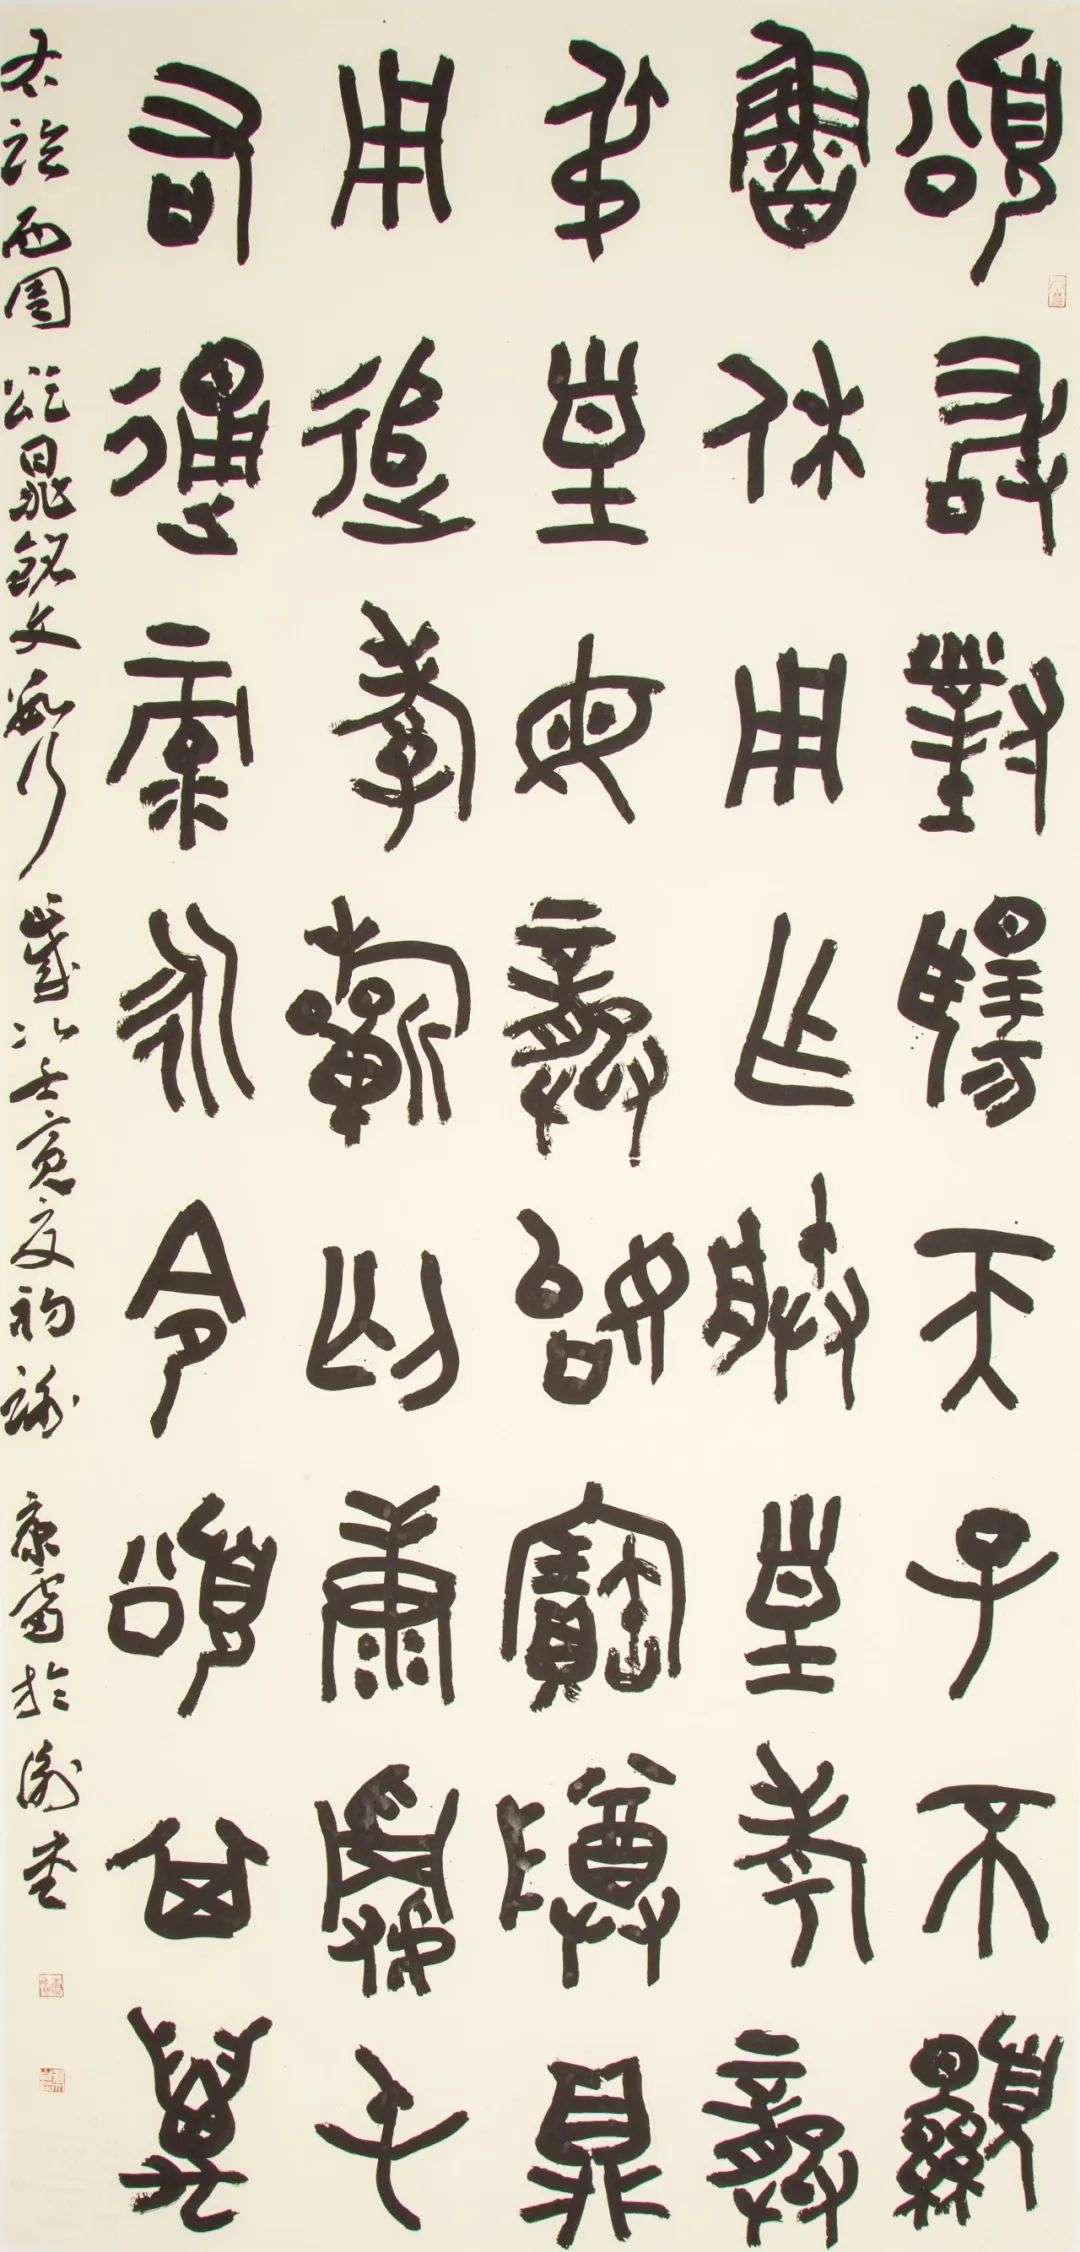 頌敢對揚天子不顯
魯休用乍朕皇考龏
弔皇母龏姒寶尊鼎
用追孝祈匄康𠭯屯
右通彔永令頌其萬
右臨西周頌鼎銘文數行 歲次壬寅夏初 康雷於